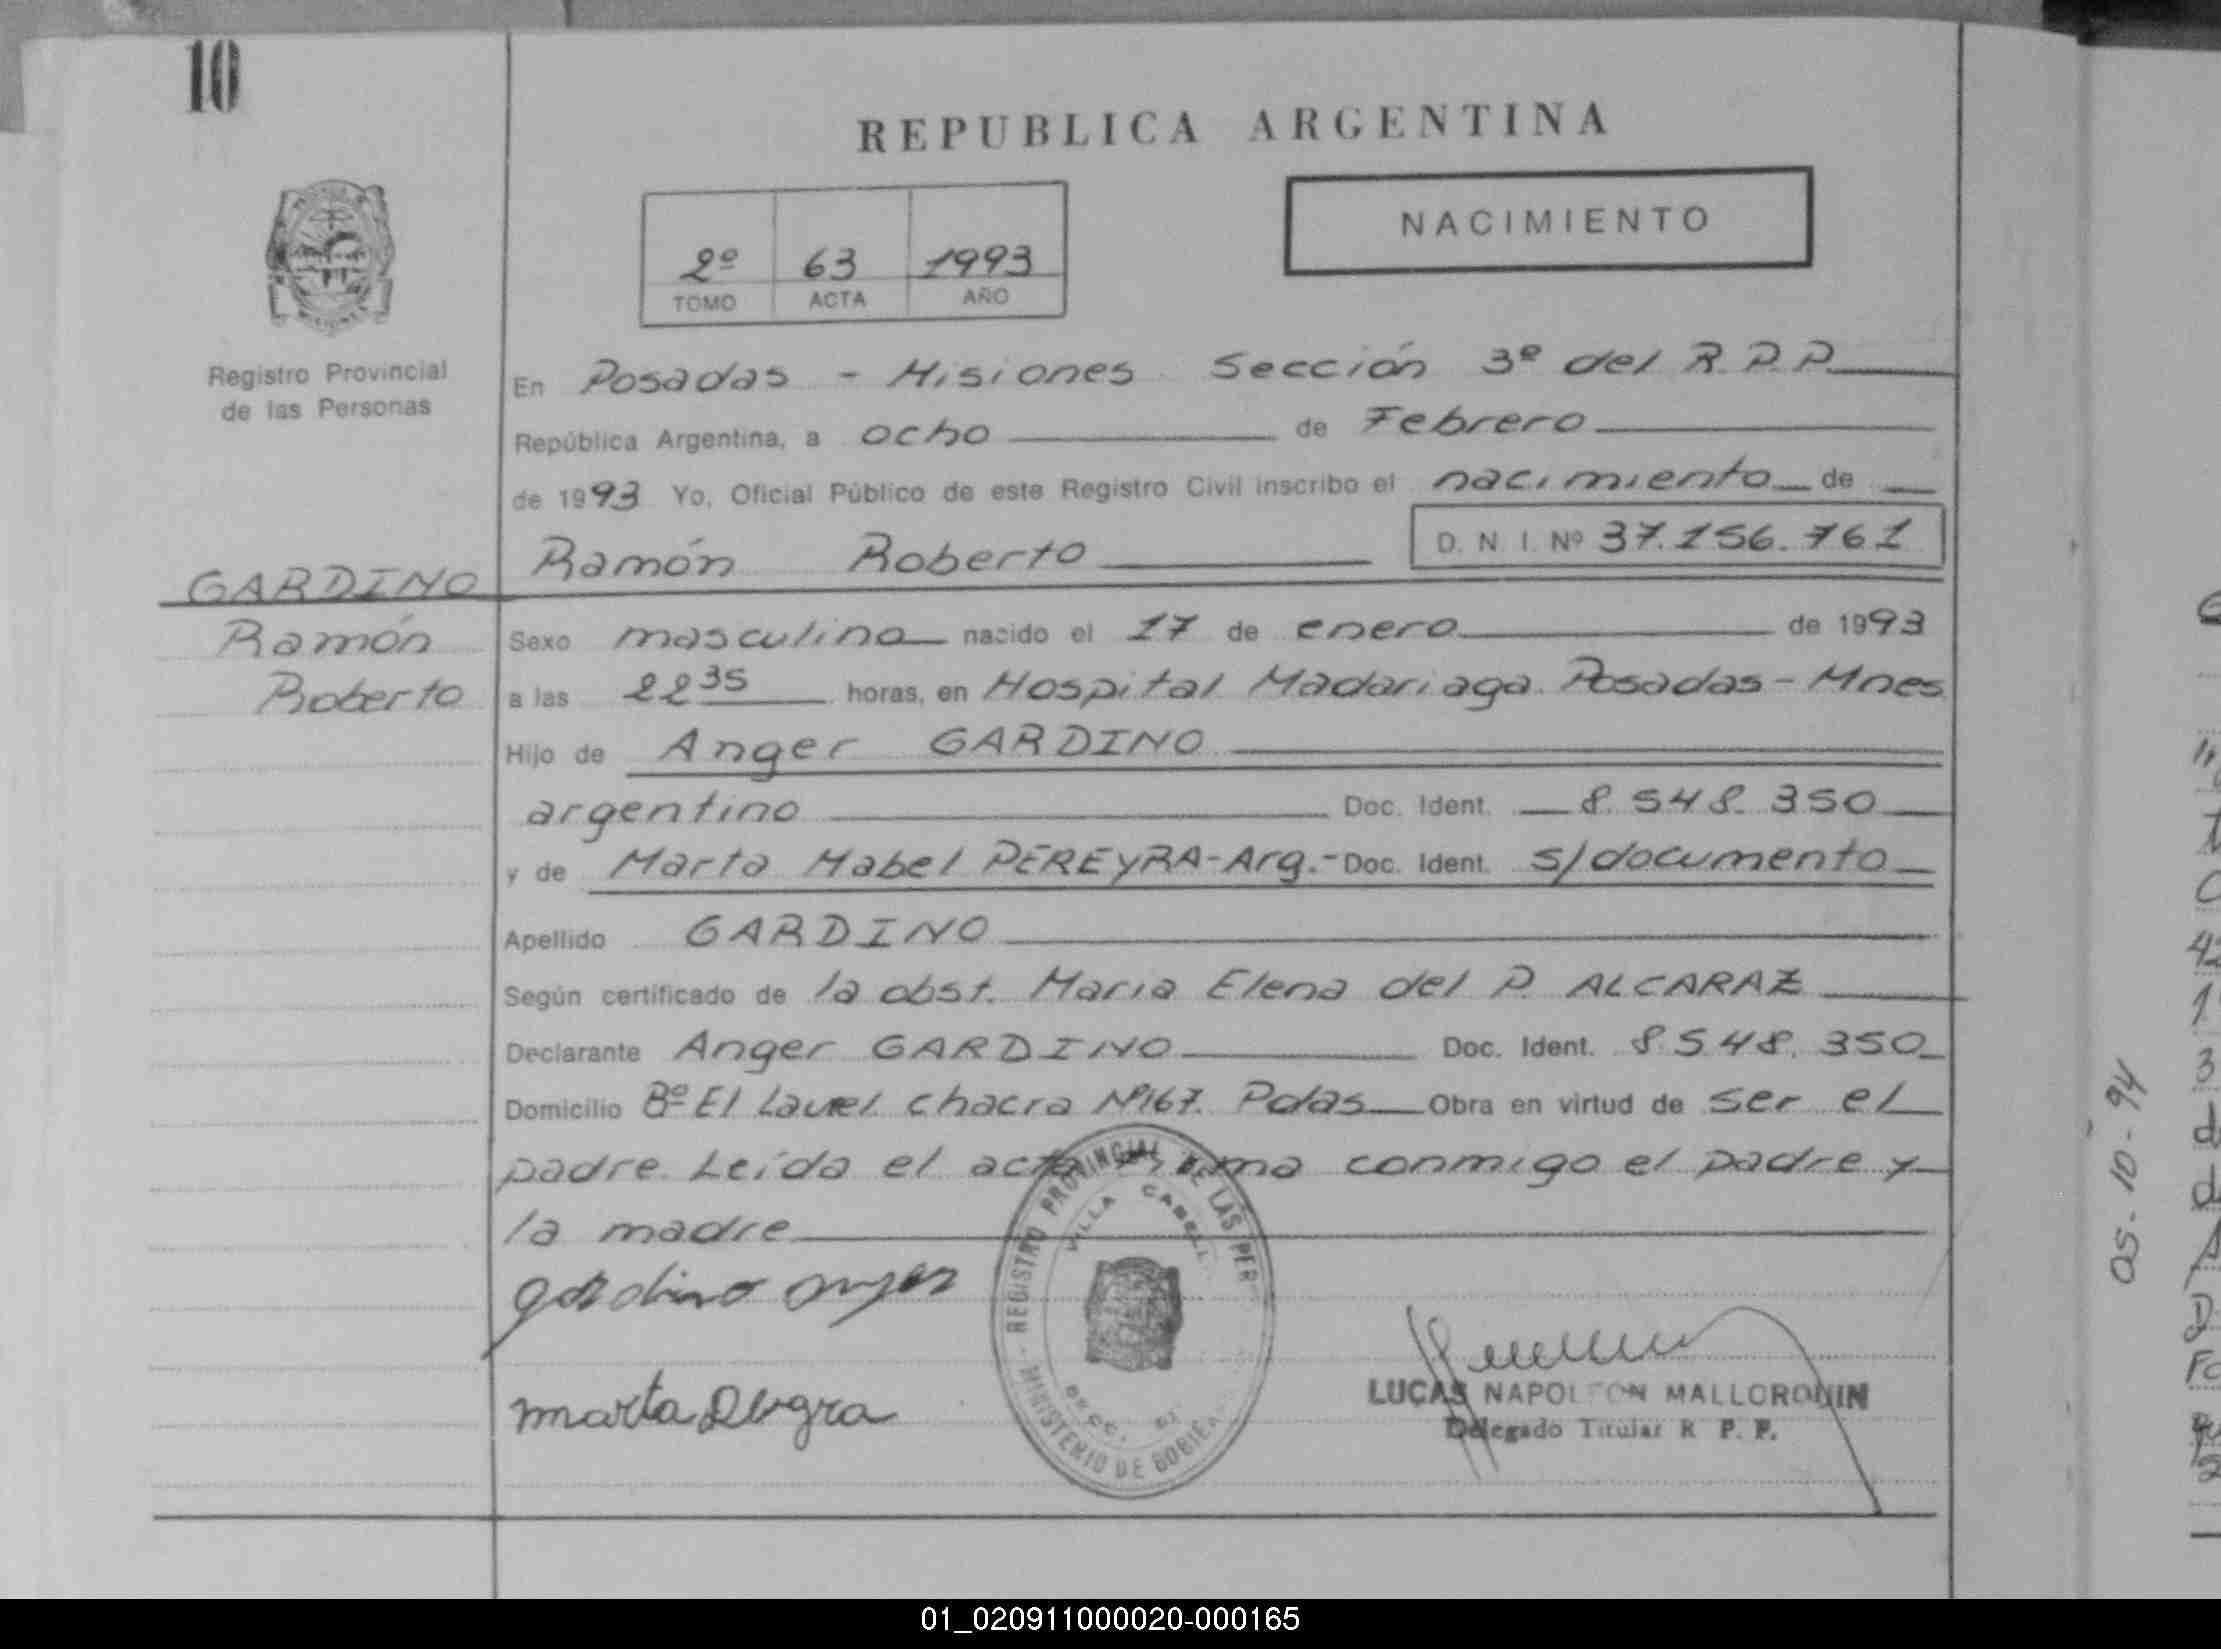 10
REPUBLICA ARGENTINA
NACIMIENTO
2º 63 1993
TOMO ACTA AÑO
Registro Provincial
de las Personas
En Posadas - Misiones Sección 3º del R.P.P.
República Argentina, a ocho de Febrero
de 1993 Yo, Oficial Público de este Registro Civil inscribo el nacimiento de
Ramón Roberto D. N. I. Nº 37.156.761
GARDINO
Ramón
Roberto
Sexo masculino nacido el 17 de enero de 1993
a las 22 35 horas, en Hospital Madariaga. Posadas - Mnes
Hijo de Anger GARDINO
argentino Doc. Ident. 8.548.350
y de Marta Mabel PEREYRA - Arg. - Doc. Ident. s/documento
Apellido GARDINO
Según certificado de la obst. Maria Elena del P. ALCARAZ
Declarante Anger GARDINO Doc. Ident. 8.548.350
Domicilio Bº El Laurel chacra Nº167. Pdas Obra en virtud de ser el
padre. Leída el acta firma conmigo el padre y
la madre
gardino anger
marta
REGISTRO PROVINCIAL DE LAS PER
VILLA CABELL
MINISTERIO DE GOBIE
LUCAS NAPOLEON MALLORQUIN
Delegado Titular R P. P.
05-10-94
01_020911000020-000165